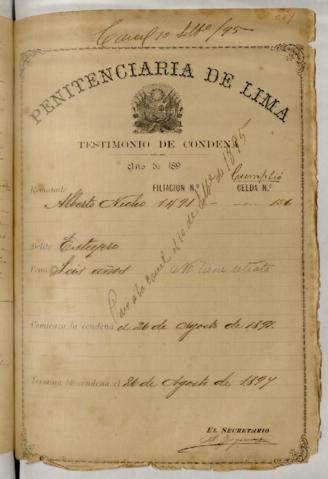 Carcel 10 Stbe/95
PENITENCIARIA DE LIMA
TESTIMONIO DE CONDENA
Año de 189
Cumplió
Rematado FILIACION N.° CELDA N.°
Alberto Nicho 1491 136
Pasó á la carcel el 10 de Stbe de 1895
Delito Estupro
Pena Seis años No tiene retrato
Comienza la condena el 26 de Agosto de 1891.
Termina la condena el 26 de Agosto de 1897
EL SECRETARIO